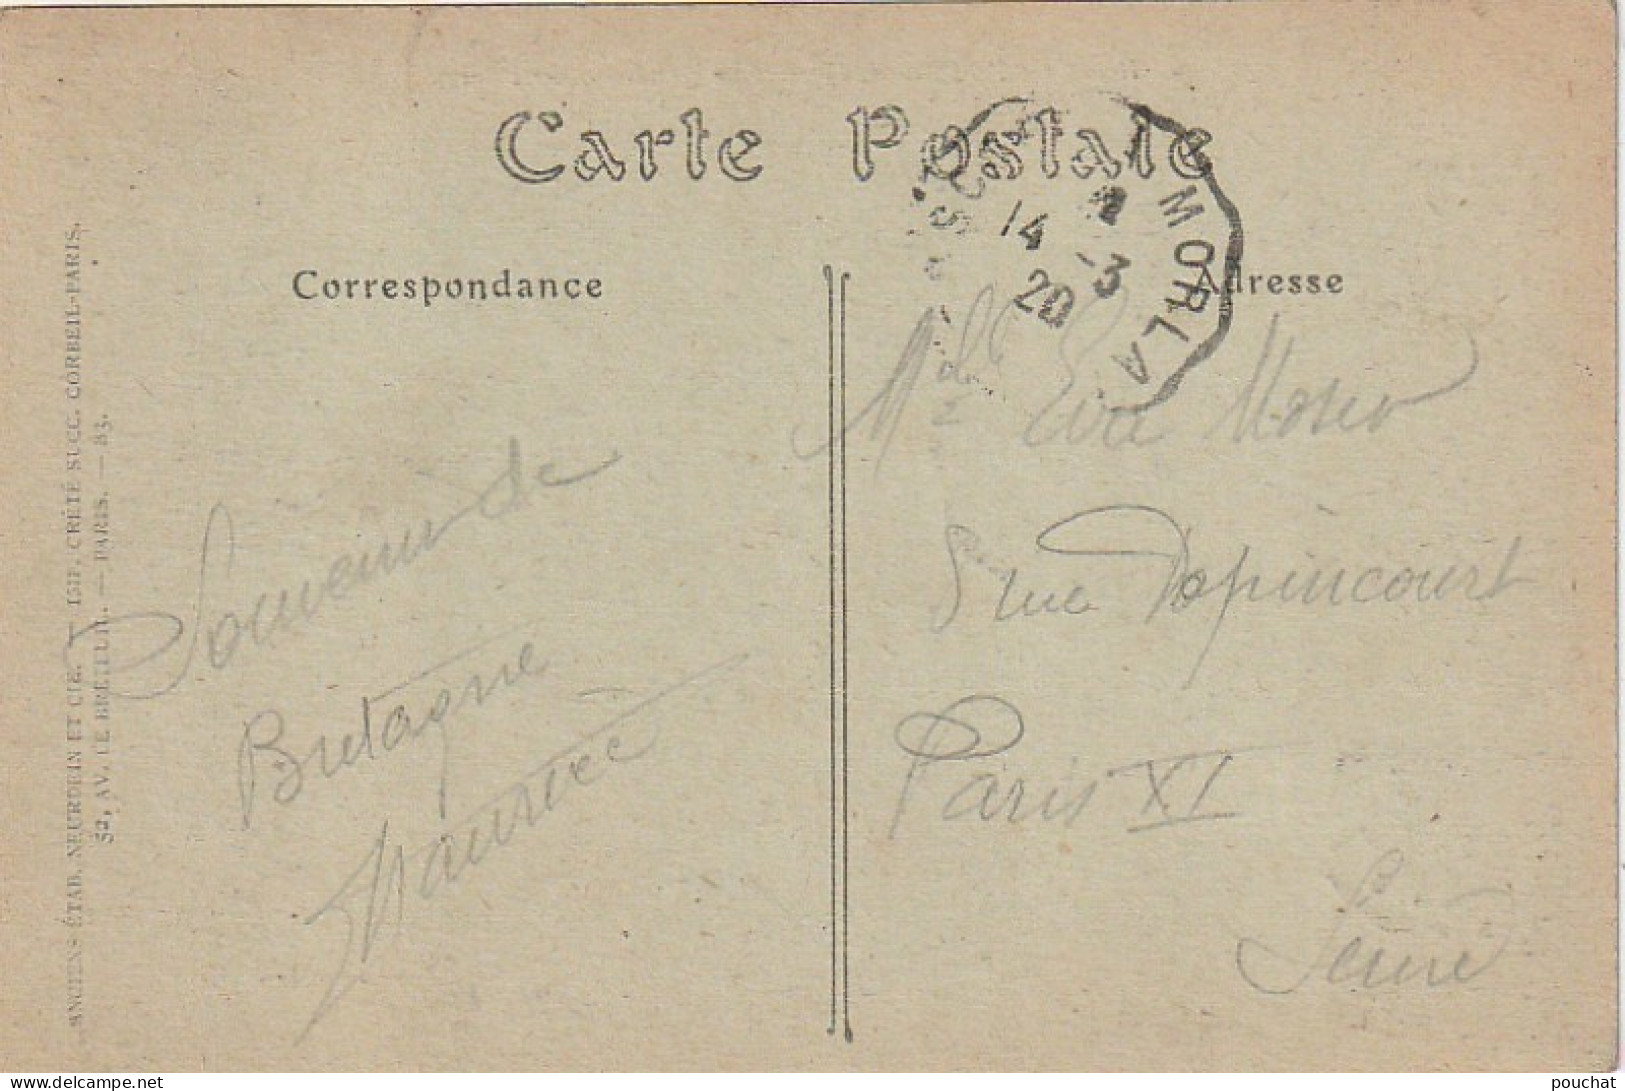 Carte Postale
Correspondance
Adresse
MORLA
14 2
-3
20
ANCIENS ÉTAB. NEURDEIN ET CIE. — IMP. CRÉTÉ SUCC. CORBEIL-PARIS.
52, AV. DE BRETEUIL. — PARIS. — 83.
Souvenir de
Bretagne
Maurice
Mdlle Eva Moser
5 rue Popincourt
Paris XI
Seine
www.delcampe.net
pouchat